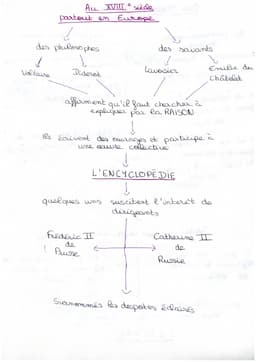 Au XVIII° siècle
partout en Europe
des philosophes des savants
Voltaire Diderot Lavoisier Emilie du
Châtelet
affirment qu'il faut chercher à
expliquer par la RAISON
Ils écrivent des ouvrages et participe à
une œuvre collective
L'ENCYCLOPÉDIE
quelques uns suscitent l'intérêt de
dirigeants
Frédéric II Catherine II
de de
Prusse Russie
Surnommés les despotes éclairés